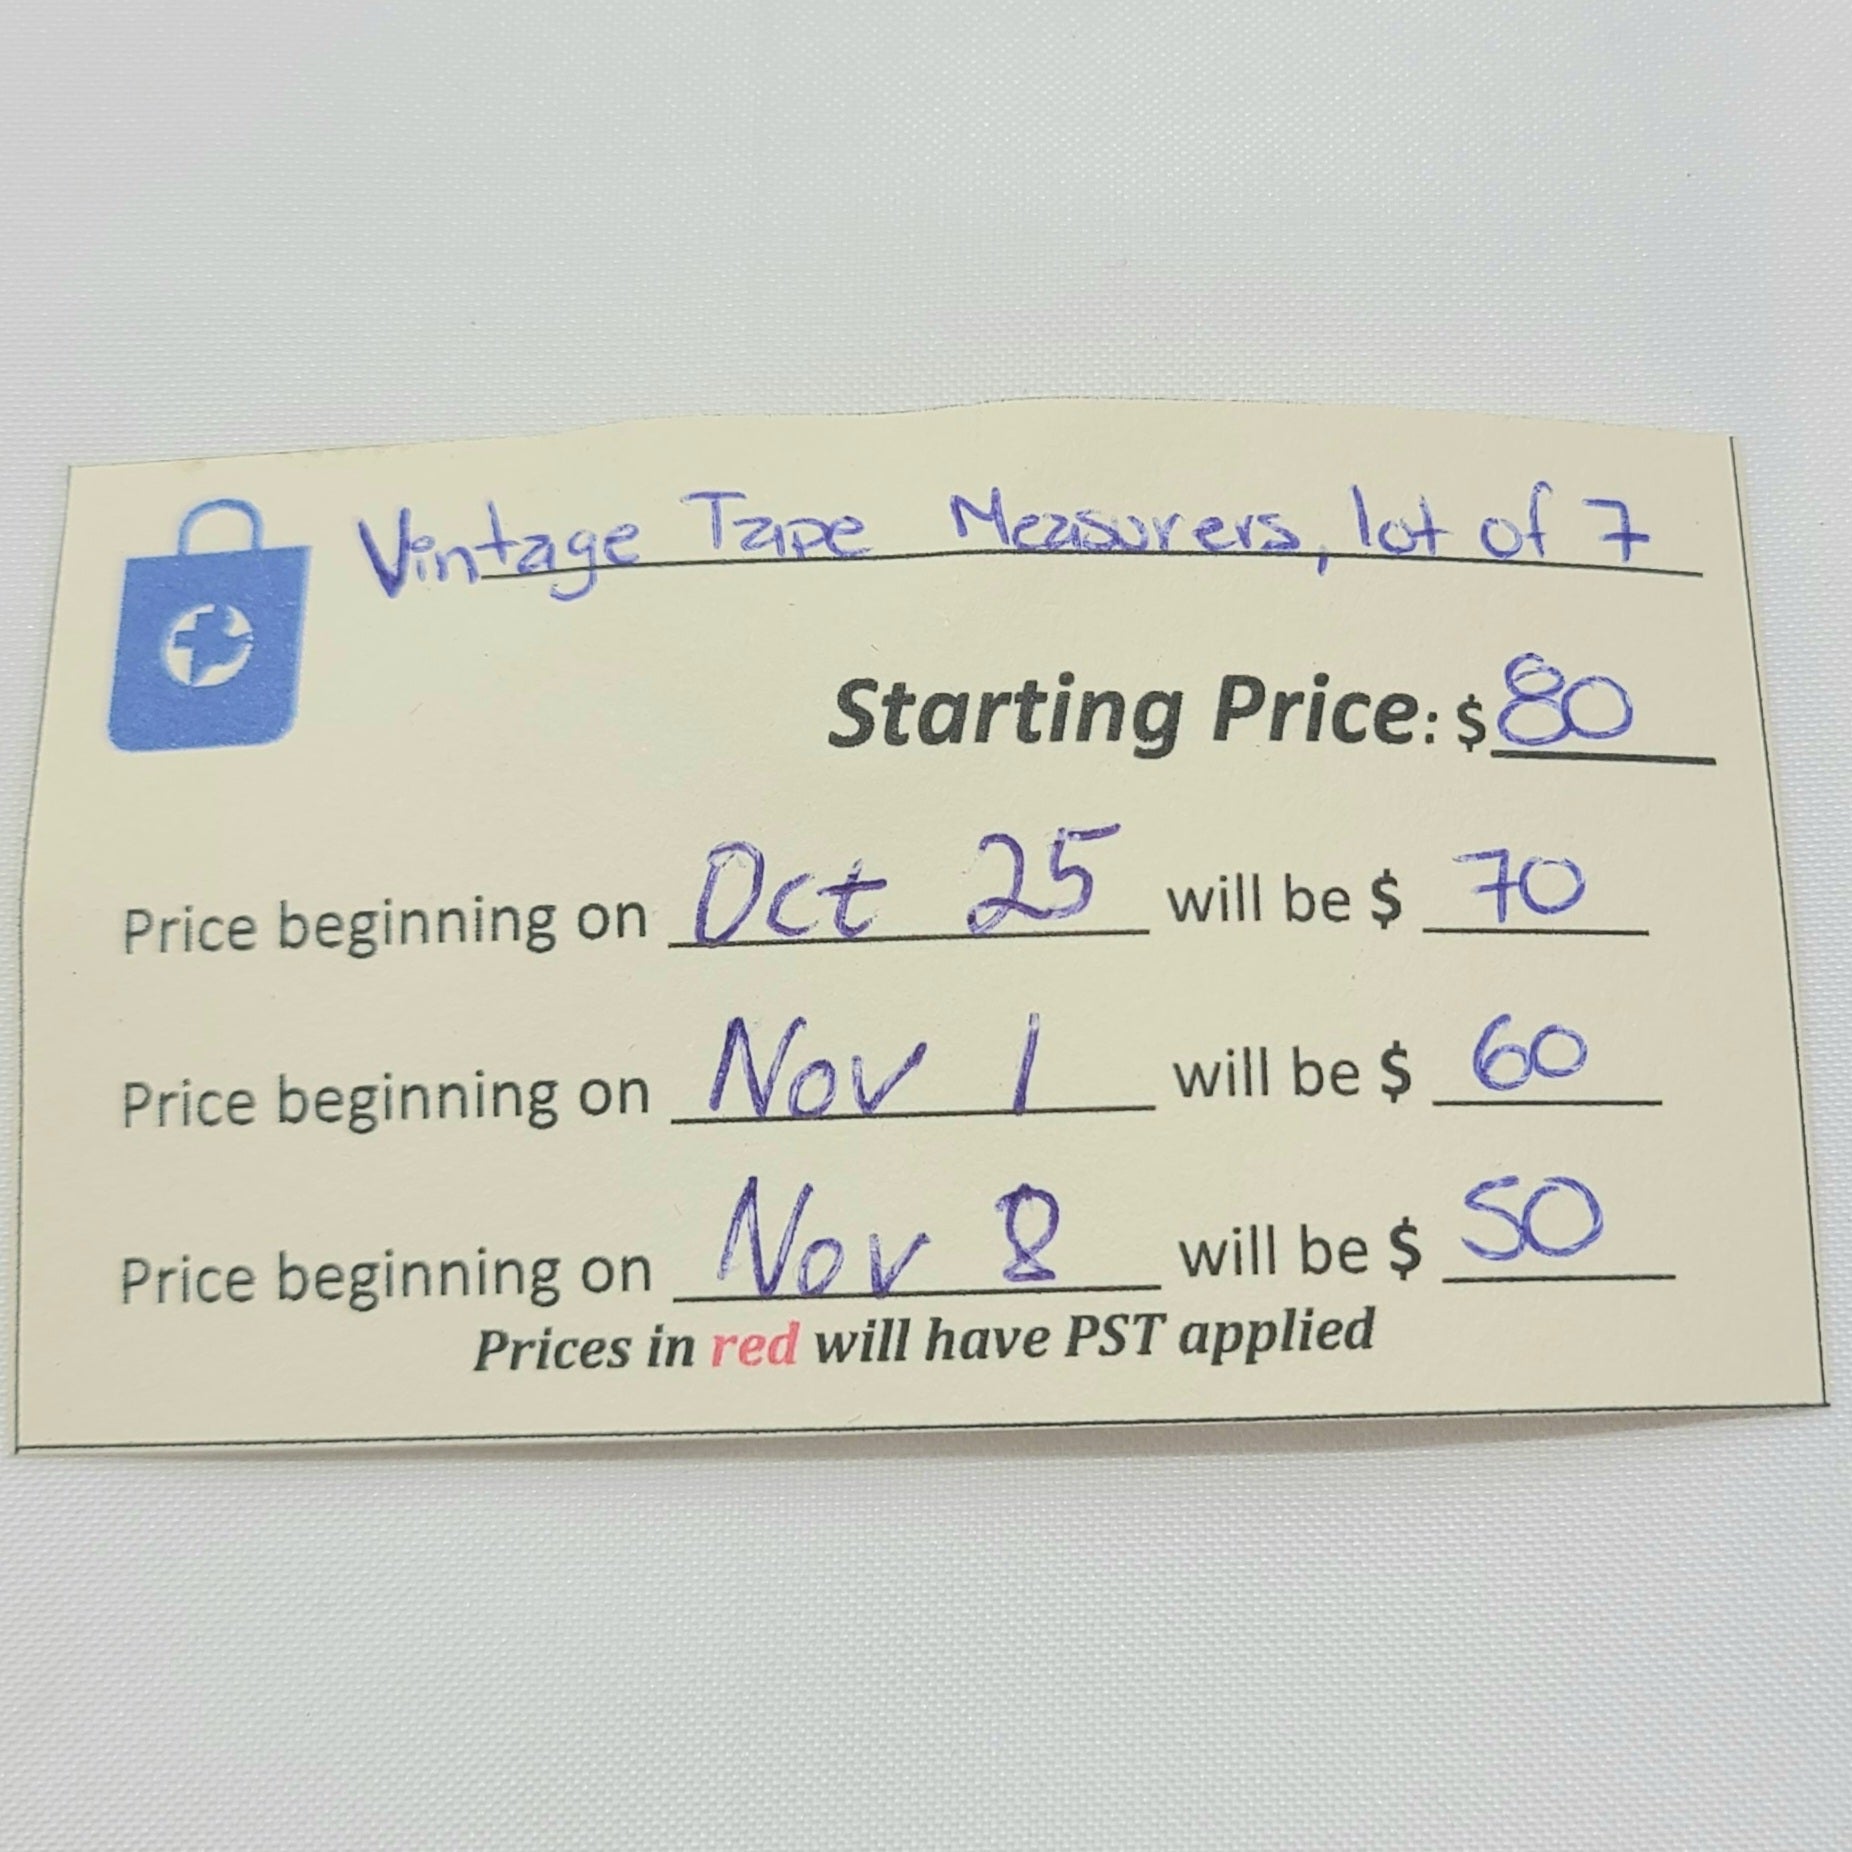 Vintage Tape Measurers, lot of 7
Starting Price: $80
Price beginning on Oct 25 will be $ 70
Price beginning on Nov 1 will be $ 60
Price beginning on Nov 8 will be $ 50
Prices in red will have PST applied